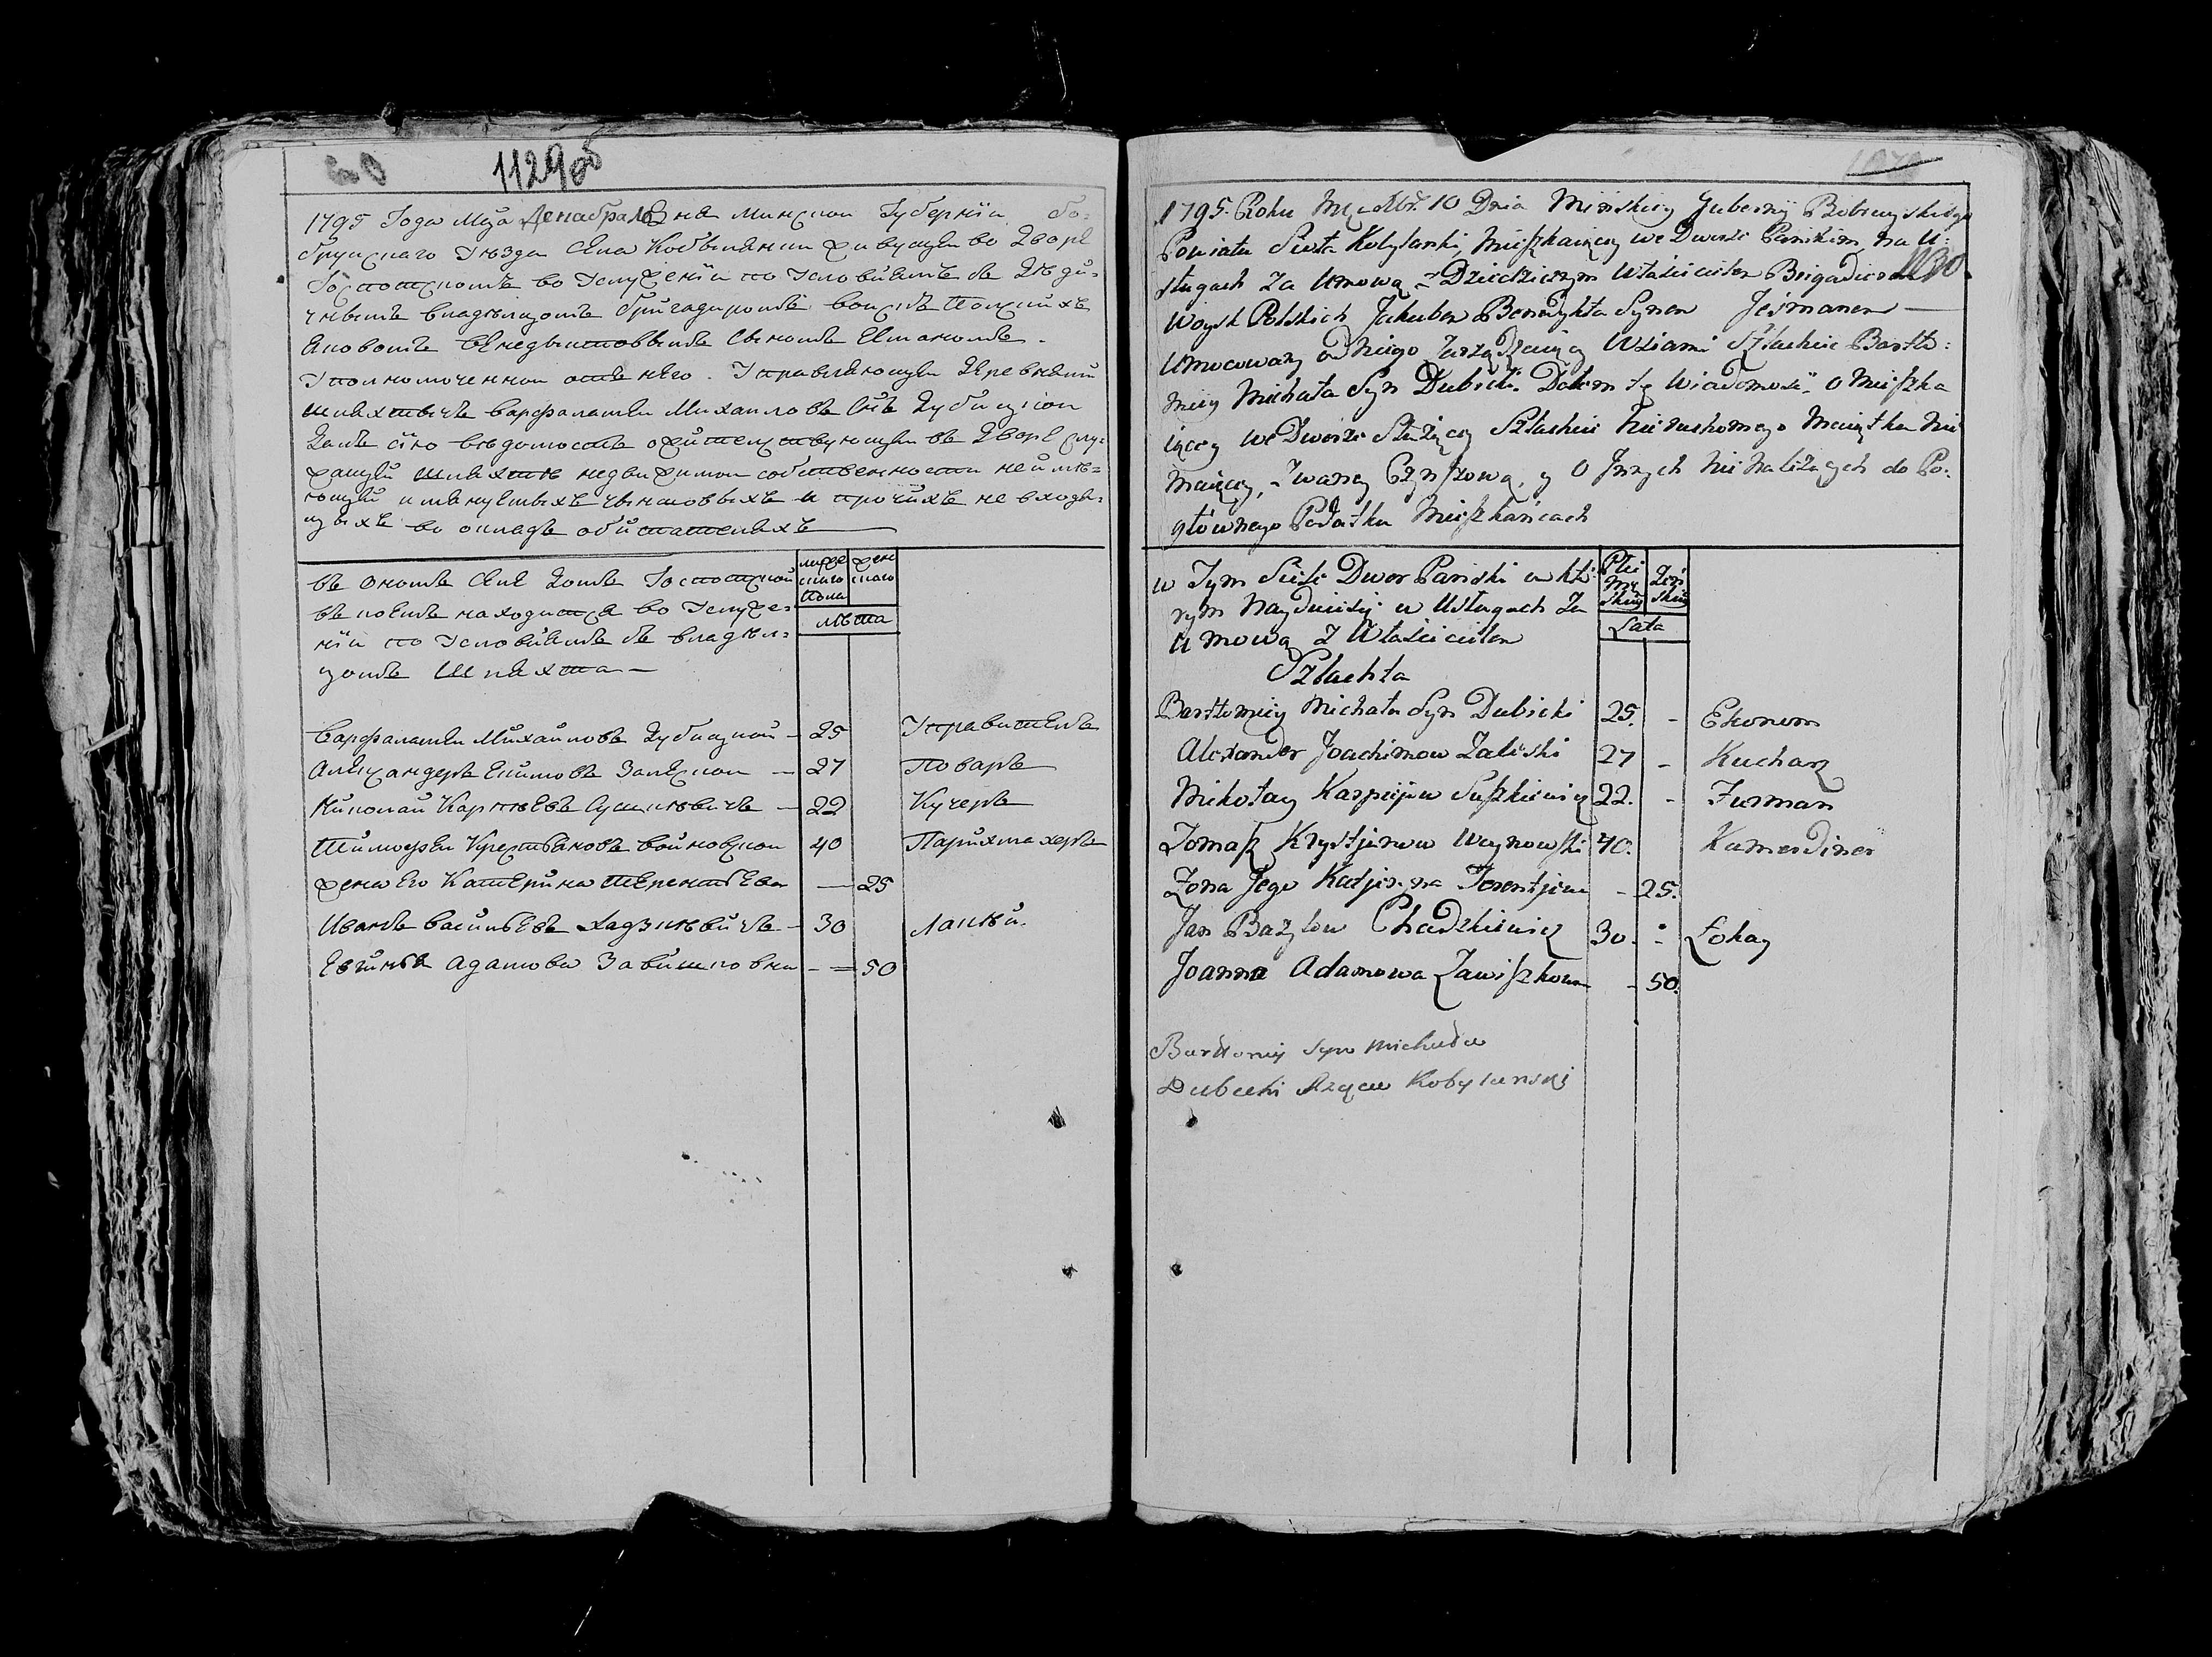 1129 об
1795 Года Мца Декабра 10 Дня Минскои Губернїи бо=
бруиснаго Уезда Села Кобылянки живущеи во Дворе
Госпотскомъ во Услуженїи по Условиямъ съ Педи=
чнымъ владелцомъ бригадиромъ воискъ Полскихъ
Яковомъ Бенедыктовымъ Сыномъ Есманомъ.
Уполномоченнои отъ него. Управляющеи Деревнями
шляхтычъ варфаламеи Михаиловъ Снъ Дубицкои
Даль сїю вѣдомость о жителствующеи въ Дворе слу=
жащеи шляхте недвижимои собственности не имѣ=
ющеи имянуемыхъ чыншовыхъ и прочихъ не входя=
щыхъ во окладъ обитателяхъ
въ ономъ селе домъ Госпотской
въ коемъ находится во Услуже=
нїи по Условиямъ съ владел=
цомъ Шляхта
муже скаго пола
жен скаго
лѣта
Варфаламеи Михаиловъ Дубицкой 25 Управитель
Александеръ Екимовъ Залескои 27 Поваръ
Николаи Карпѣевъ Сушкѣвичъ 22 Кучеръ
Тимофеи Крестьяновъ Войновскои 40 Парихмахеръ
жена Его Катерина Терентьева 25
Иванъ Васильевъ Хадзкѣвичъ 30 Лакѣй
Евгинья Адамова Завишловна 50
1130
1795. Roku Mca Xbr. 10 Dnia Mińskiey Guberniy Bobruyskiego
Powiatu Sieła Kobylanki, Mieszkaiącey we Dworze Pańskim, na U=
sługach za Umową z Dziedzicznym Właścicielem Brigadierem
Woysk Polskich Jakubem Benedykta Synem Jeśmanem
Umocowany od niego Zarządzaiący Wsiami Szlachcic Bartło=
miey Michała Syn Dubicki. Dałem tę Wiadomość o Mieszka
iącey we Dworze Służącey Szlachcie Nieruchomego Maiątku Nie
Maiącey, zwaney Czynszową, y o Jnnych Nienależących do Po=
głównego Podatku Mieszkańcach
w Tym Siele Dwor Pański w któ
rym Nayduiesię w Usługach Za
Umową z Właścicielem
Szlachta
Płci Mę skiey
Żeń skiey
Lata
Bartłomiey Michała Syn Dubicki 25. - Ekonom
Alexander Joachimow Zaleski 27 - Kucharz
Mikołay Karpiejew Suszkiewicz 22. - Furman
Tomasz Krystjanow Woynowski 40. Kamerdiner
Żona Jego Katjeryna Terentjewa - 25.
Jan Bazylow Chadzkiewicz 30. - Łokay
Joanna Adamowa Zawiszowna - 50.
Bartłomiy Syn Michała
Dubicki Rządca Kobylanski